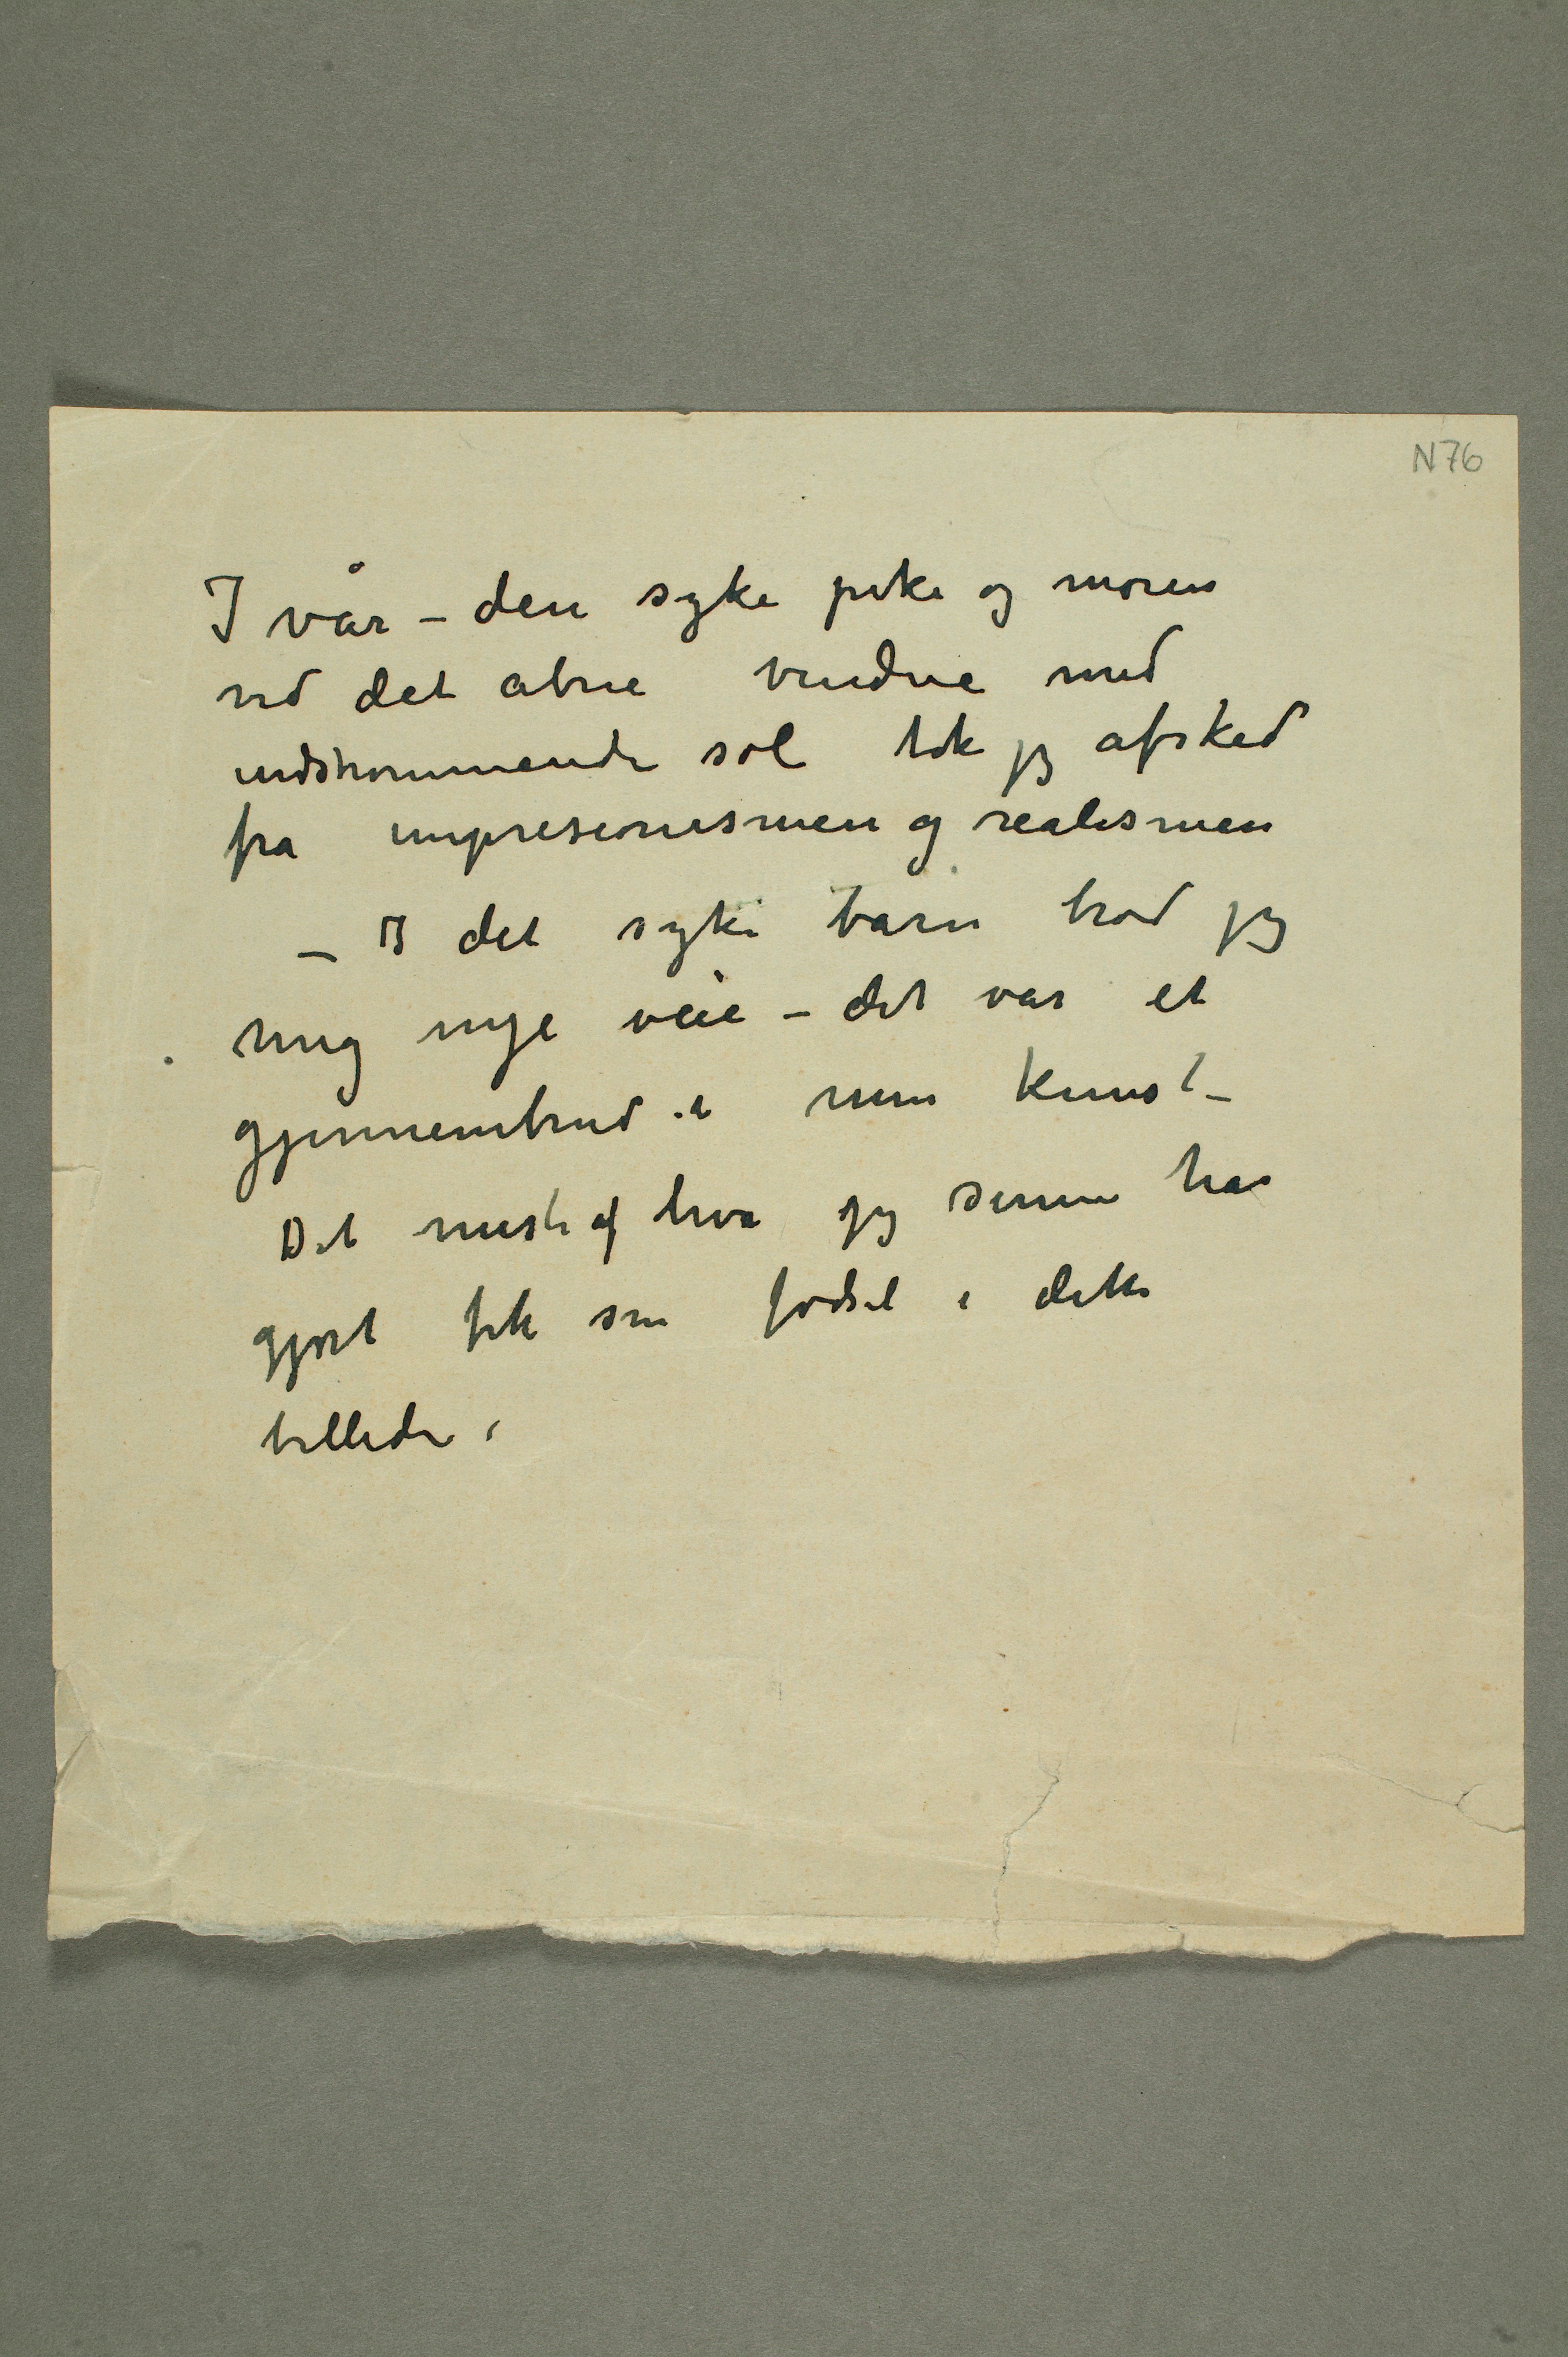 N76
I vår – den syke pike og moren
ved det åbne vindue med
indstrømmende sol tok jeg afsked
fra impresionismen og realismen
– I det syke barn brød jeg
mig nye veie – det var et
gjennembrud i min kunst –
Det meste af hva jeg senere har
gjort fik sin fødsel i dette
billede.